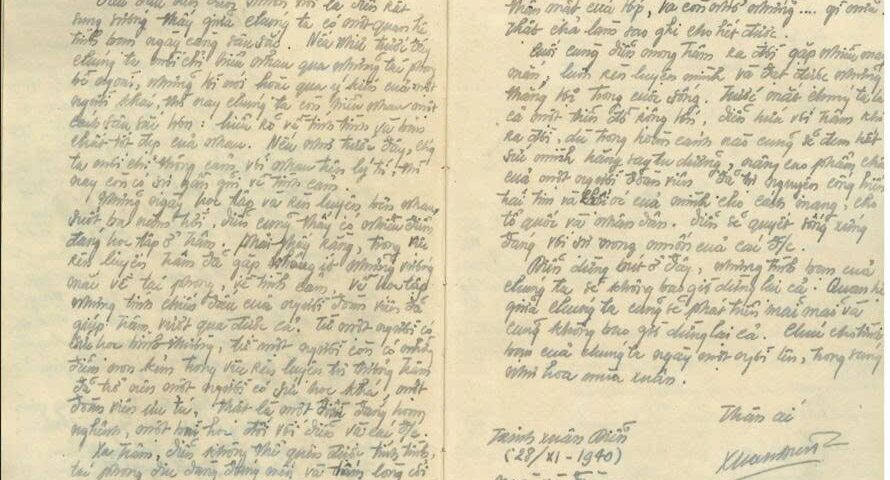 sung sướng thấy giữa chúng ta có một quan hệ
tình bạn ngày càng sâu sắc. Nếu như trước đây
chúng ta mới chỉ hiểu nhau qua những tác phong
bề ngoài, những lời nói hoặc qua ý kiến của một
người khác, thì nay chúng ta còn hiểu nhau một
cách sâu sắc hơn: hiểu rõ về tính tình và bản
chất tốt đẹp của nhau. Nếu như trước đây, chúng
ta mới chỉ thông cảm với nhau trên lý trí, thì
nay còn có sự gần gũi về tình cảm.
Những ngày học tập và rèn luyện bên nhau,
suốt ba năm trời, Diễn cũng thấy có nhiều điểm
đáng học tập ở Trâm. Phải thấy rằng, trong việc
rèn luyện Trâm đã gặp không ít những vướng
mắc về tác phong, về tình cảm, về học tập
những tính chiến đấu của người đoàn viên đã
giúp Trâm vượt qua được cả. Từ một người có
sức học bình thường, từ một người còn có những
điểm non kém trong việc rèn luyện tư tưởng Trâm
đã trở nên một người có sức học khá, một
đoàn viên ưu tú. Thật là một điểm đáng hoan
nghênh, một bài học đối với Diễn và cả
Xa Trâm, Diễn không thể quên được tính tình,
tác phong dịu dàng, đúng mực và tấm lòng cởi
thân mật của lớp, và còn nhớ những.... gì nữa
thật chả làm sao ghi cho hết được.
Cuối cùng Diễn mong Trâm ra đời gặp nhiều may
mắn, luôn rèn luyện mình và đạt được những
thắng lợi trong cuộc sống. Trước mắt chúng ta là
cả một tiền đồ rộng rãi, Diễn hứa với Trâm khi
ra đời, dù trong hoàn cảnh nào cũng sẽ đem hết
sức mình hăng say tu dưỡng, nâng cao phẩm chất
của một người đoàn viên đã tự nguyện cống hiến
của mình cho cách mạng, cho
tổ quốc và nhân dân. Diễn sẽ quyết sống xứng
đáng với sự mong muốn của
Diễn dừng bút ở đây, nhưng tình bạn của
chúng ta sẽ không bao giờ dừng lại cả. Quan hệ
giữa chúng ta cũng sẽ phát triển mãi mãi và
cũng không bao giờ dừng lại cả. Chúc cho tình
bạn của chúng ta ngày một ngời lên, trong sáng
như hoa mùa xuân.
Thân ái
Trịnh Xuân Diễn
(28/XI-1940)